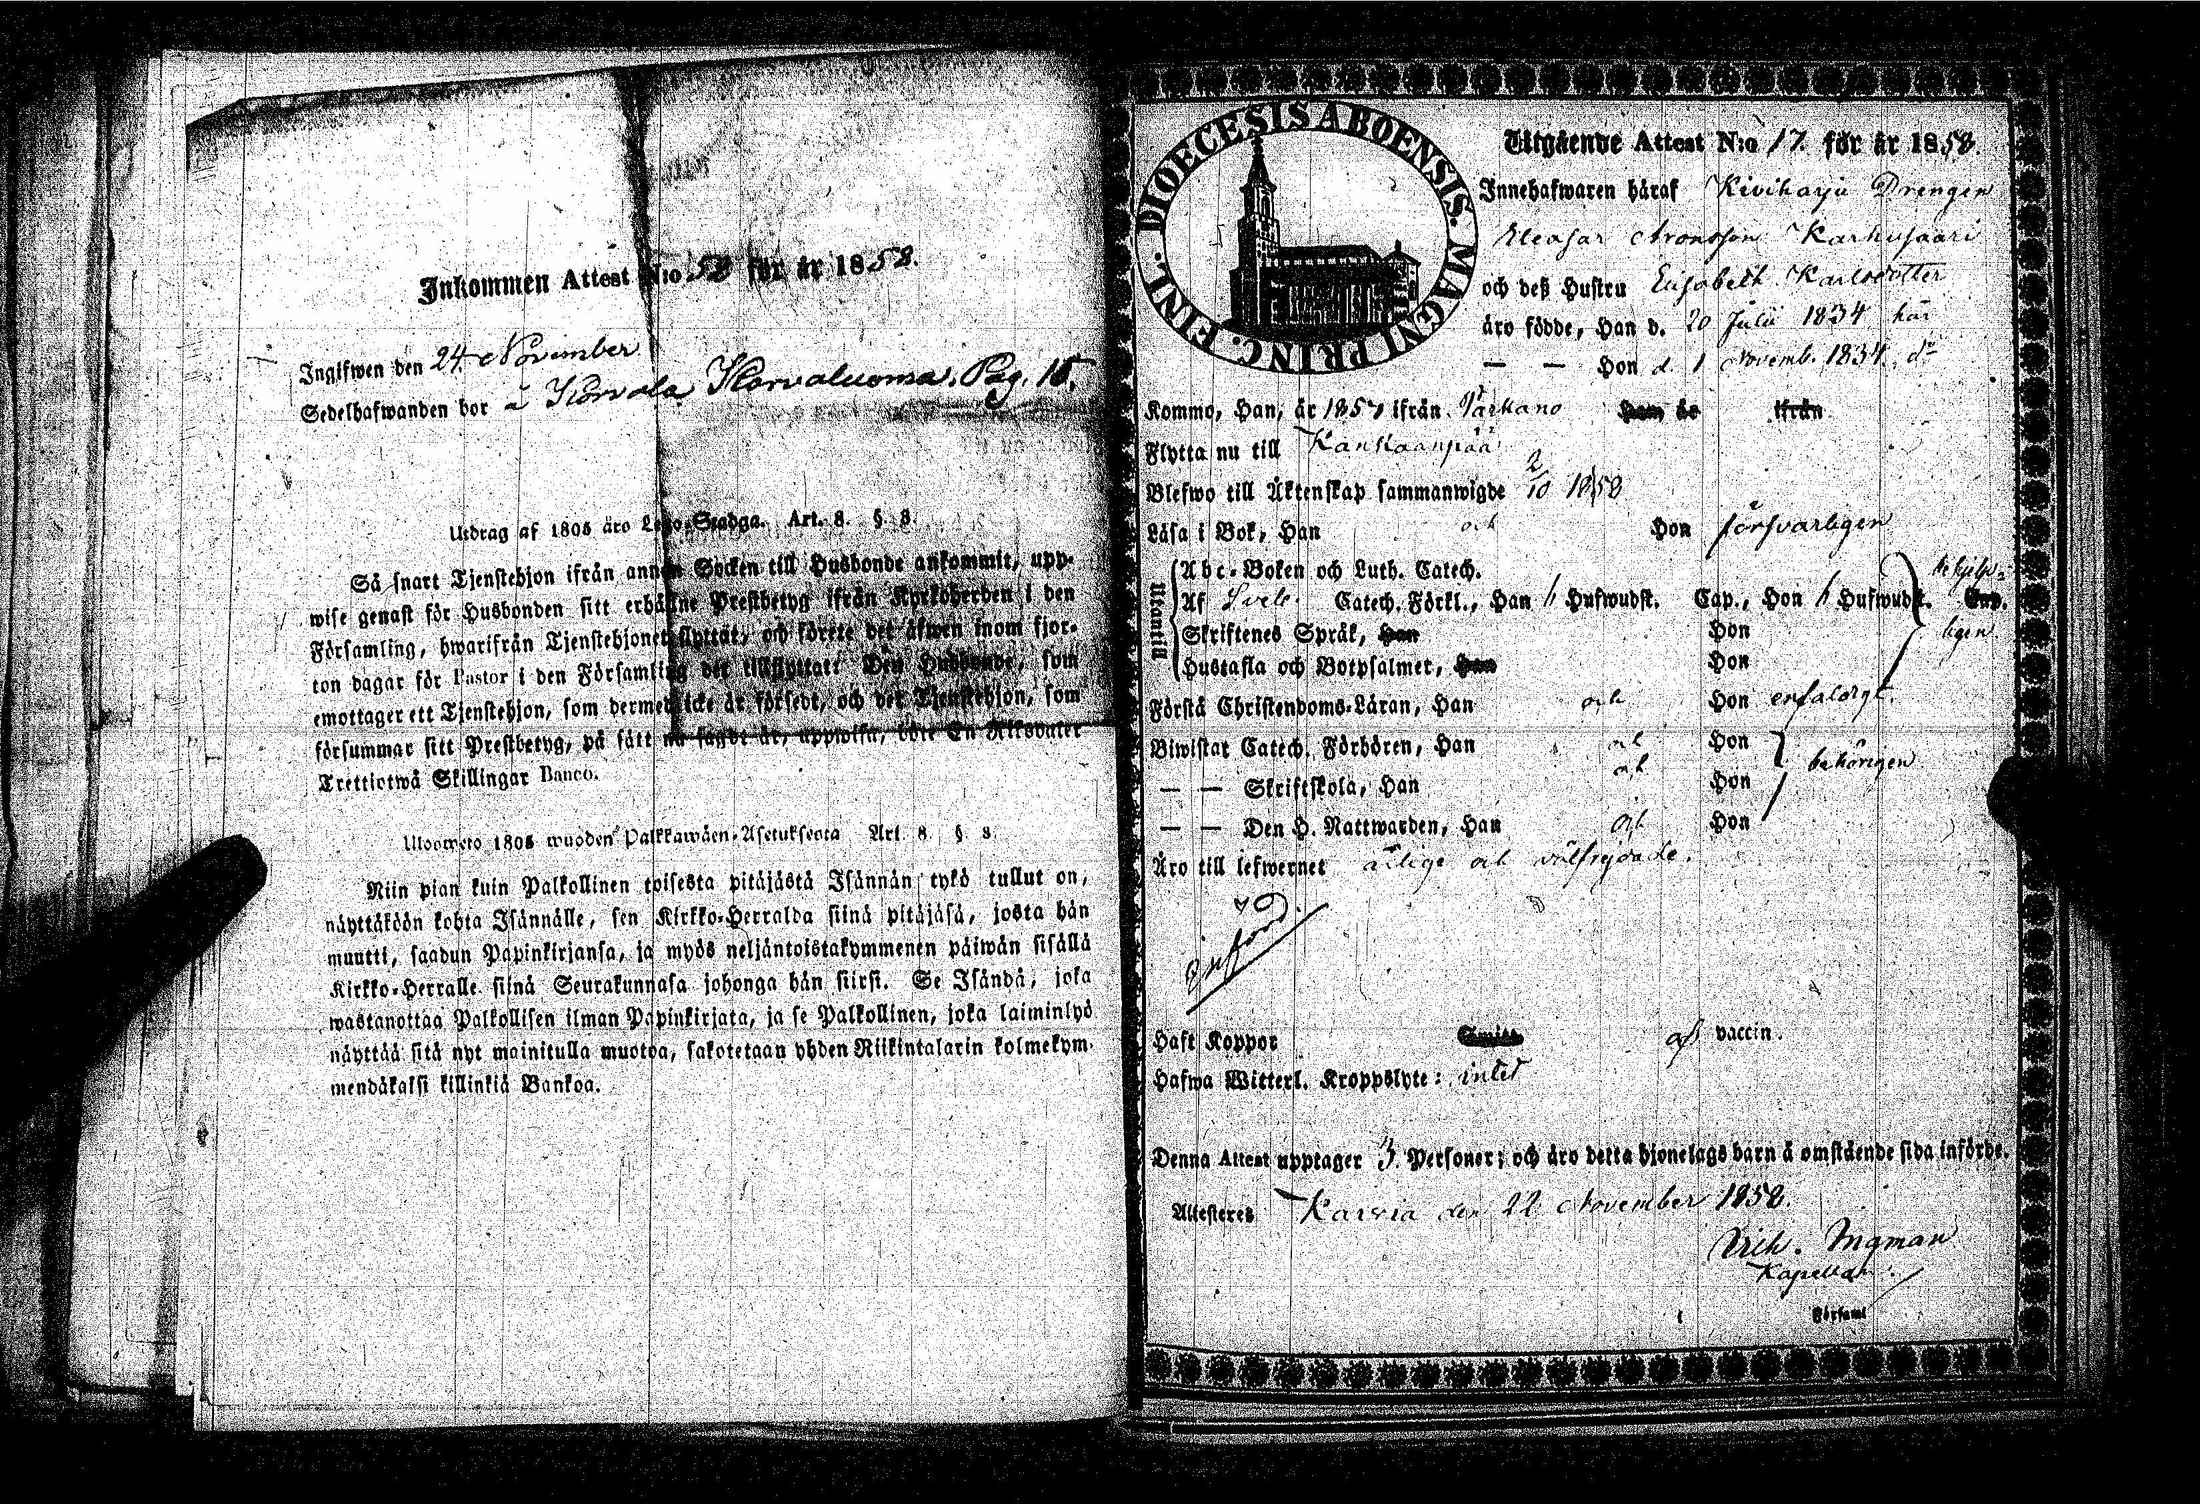 Inkommen Attest N:o 58 för år 1858.
Inglfwen den 24 November
Sedelhafwanden bor å Korvola Korvaluoma. Pag. 15.
Utdrag af 1805 åro Lego-Stadga. Art. 8. § 8.
Så snart Tjenstehjon ifrån annan Socken till Husbonde ankommit, upp-
wise genast för Husbonden sitt erhållne Prestbetyg ifrån Kyrkoherden i den
Församling, hwarifrån Tjenstehjonet flyttat, och förete det äfwen inom fjor-
ton dagar för Pastor i den Församling det tillflyttat. Den Husbonde, som
emottager ett Tjenstehjon, som dermed icke är försedt, och det Tjenstehjon, som
försummar sitt Prestbetyg, på sätt nu sagdt är, uppwisa, böte En Riksdaler
Trettiotwå Skillingar Banco.
Ulosweto 1805 wuoden Palkkawäen-Asetuksesta Art. 8. § 8.
Niin pian kuin Palkollinen toisesta pitäjästä Isännän tykö tullut on,
näyttäköön kohta Isännälle, sen Kirkko-Herralda siinä pitäjäsä, josta hän
muutti, saadun Papinkirjansa, ja myös neljäntoistakymmenen päiwän sisällä
Kirkko-Herralle siinä Seurakunnasa johonga hän siirsi. Se Isändä, joka
wastanottaa Palkollisen ilman Papinkirjata, ja se Palkollinen, joka laiminlyö
näyttää sitä nyt mainitulla muotoa, sakotetaan yhden Riikintalarin kolmekym-
mendäkaksi killinkiä Bankoa.
DIOECESIS ABOENSIS. MAGNI PRINC. FINL.
Utgående Attest N:o 17. för år 1858.
Innehafwaren häraf Kiviharju Drengen
Eleasar Aronsson Karhusaari
och deß Hustru Elisabeth Karlsdotter
äro födde, Han d. 20 Julii 1834 här
— — Hon d. 1 Novemb. 1834. do
Kommo, Han, år 1857 ifrån Parkano Hon år ifrån
Flytta nu till Kankaanpää
Blefwo till Äktenskap sammanwigde 2/10 1858
Läsa i Bok, Han och Hon försvarligen
Utantill
Abc-Boken och Luth. Catech.
Af Sveb. Catech. Förkl., Han h Hufwudst. Cap., Hon h Hufwudst. Cap. behjelp-
Skriftenes Språk, Han Hon ligen
Hustafla och Botpsalmer, Han Hon
Förstå Christendoms-Läran, Han och Hon enfaldigt.
Biwistat Catech. Förhören, Han och Hon
— — Skriftskola, Han och Hon behörigen
— — Den H. Nattwarden, Han och Hon
Äro till lefwernet ärlige och välfrejdade.
Haft Koppor vaccin.
Hafwa Witterl. Kroppslyte: intet
Denna Attest upptager 3 Personer; och äro detta hjonelags barn å omstående sida införde.
Attesteres Karvia den 22 November 1858.
Ingman
Kapellan.
Församl